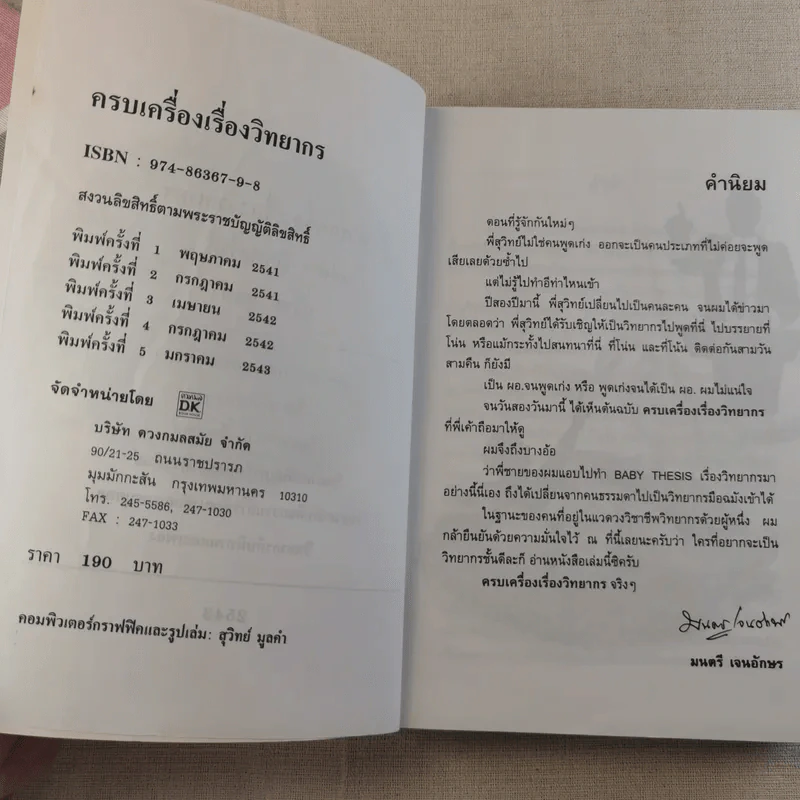 ครบเครื่องเรื่องวิทยากร
ISBN : 974-86367-9-8
สงวนลิขสิทธิ์ตามพระราชบัญญัติลิขสิทธิ์
พิมพ์ครั้งที่ 1 พฤษภาคม 2541
พิมพ์ครั้งที่ 2 กรกฎาคม 2541
พิมพ์ครั้งที่ 3 เมษายน 2542
พิมพ์ครั้งที่ 4 กรกฎาคม 2542
พิมพ์ครั้งที่ 5 มกราคม 2543
จัดจำหน่ายโดย
DK
บริษัท ดวงกมลสมัย จำกัด
90/21-25 ถนนราชปรารภ
มุมมักกะสัน กรุงเทพมหานคร 10310
โทร. 245-5586, 247-1030
FAX : 247-1033
ราคา 190 บาท
คอมพิวเตอร์กราฟฟิคและรูปเล่ม: สุวิทย์ มูลคำ
คำนิยม
ตอนที่รู้จักกันใหม่ๆ
พี่สุวิทย์ไม่ใช่คนพูดเก่ง ออกจะเป็นคนประเภทที่ไม่ค่อยจะพูด
เสียเลยด้วยซ้ำไป
แต่ไม่รู้ไปทำอีท่าไหนเข้า
ปีสองปีมานี้ พี่สุวิทย์เปลี่ยนไปเป็นคนละคน จนผมได้ข่าวมา
โดยตลอดว่า พี่สุวิทย์ได้รับเชิญให้เป็นวิทยากรไปพูดที่นี่ ไปบรรยายที่
โน่น หรือแม้กระทั่งไปสนทนาที่นี่ ที่โน่น และที่โน้น ติดต่อกันสามวัน
สามคืน ก็ยังมี
เป็น ผอ.จนพูดเก่ง หรือ พูดเก่งจนได้เป็น ผอ. ผมไม่แน่ใจ
จนวันสองวันมานี้ ได้เห็นต้นฉบับ ครบเครื่องเรื่องวิทยากร
ที่พี่เค้าถือมาให้ดู
ผมจึงถึงบางอ้อ
ว่าพี่ชายของผมแอบไปทำ BABY THESIS เรื่องวิทยากรมา
อย่างนี้นี่เอง ถึงได้เปลี่ยนจากคนธรรมดาไปเป็นวิทยากรมือฉมังเข้าได้
ในฐานะของคนที่อยู่ในแวดวงวิชาชีพวิทยากรด้วยผู้หนึ่ง ผม
กล้ายืนยันด้วยความมั่นใจไว้ ณ ที่นี้เลยนะครับว่า ใครที่อยากจะเป็น
วิทยากรชั้นดีละก็ อ่านหนังสือเล่มนี้ซิครับ
ครบเครื่องเรื่องวิทยากร จริงๆ
มนตรี เจนอักษร